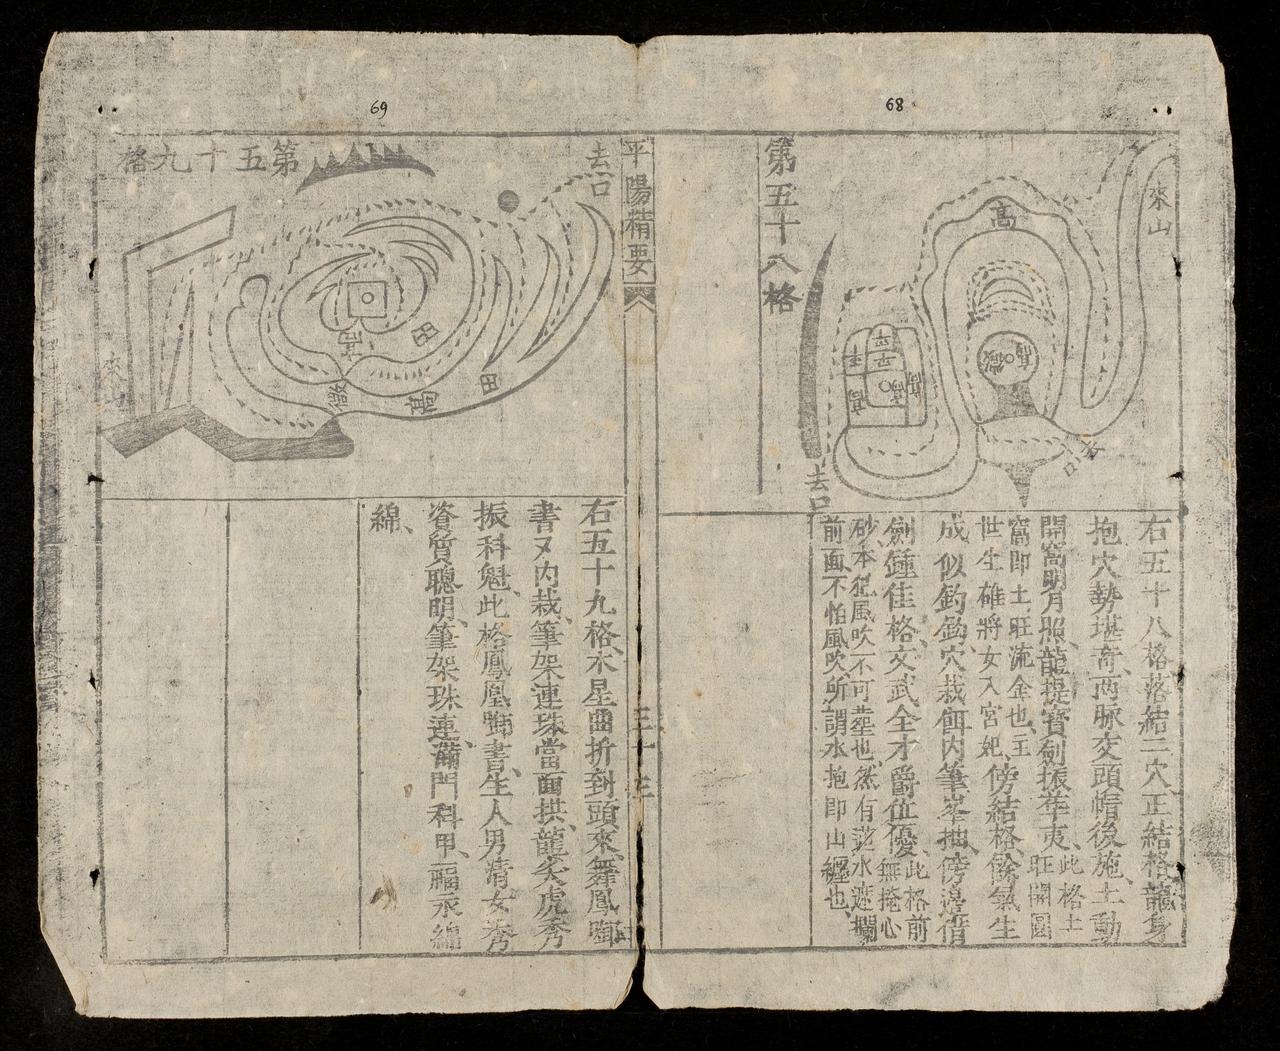 68
來山
高
高
微
去口
第五十八格
高
高
高
平
去口
右五十八格落結二穴正結格龍身
抱穴勢堪奇两脉交頭帽後施土動
開窩明月照龍提寶劍振華夷此格土旺開圓
窩即土旺流金也主
世生雄將女入宮妃傍結格餘氣生
成似釣鈎穴栽餌内筆峯抽傍邊借
劍鍾佳格文武全才爵位優此格前無掩心
砂本犯風吹不可塟也然有蓮水遮攔
前面不怕風吹所謂水抱即山纏也
平陽精要
八
三十三
69
去口
第五十九格
田
田
高
微
來山
右五十九格木星曲折到頭來舞鳳啣
書又内栽筆架連珠當面拱龍尖虎秀
振科魁此格鳳凰啣書生人男清女秀
資質聰明筆架珠連滿門科甲福永綿
綿